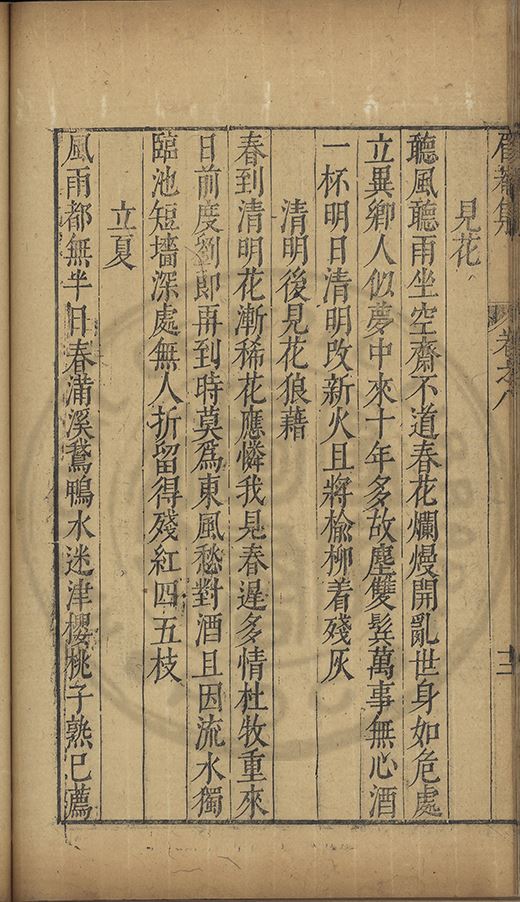 集　卷之八　十二
見花
聽風聽雨坐空齋不道春花爛熳開亂世身如危處
立異鄉人似夢中來十年多故塵雙鬂萬事無心酒
一杯明日清明改新火且將榆柳着殘灰
清明後見花狼藉
春到清明花漸稀花應憐我見春遲多情杜牧重來
日前度劉郎再到時莫為東風愁對酒且因流水獨
臨池短墻深處無人折留得殘紅四五枝
立夏
風雨都無半日春蒲溪鵞鴨水迷津櫻桃子熟已薦